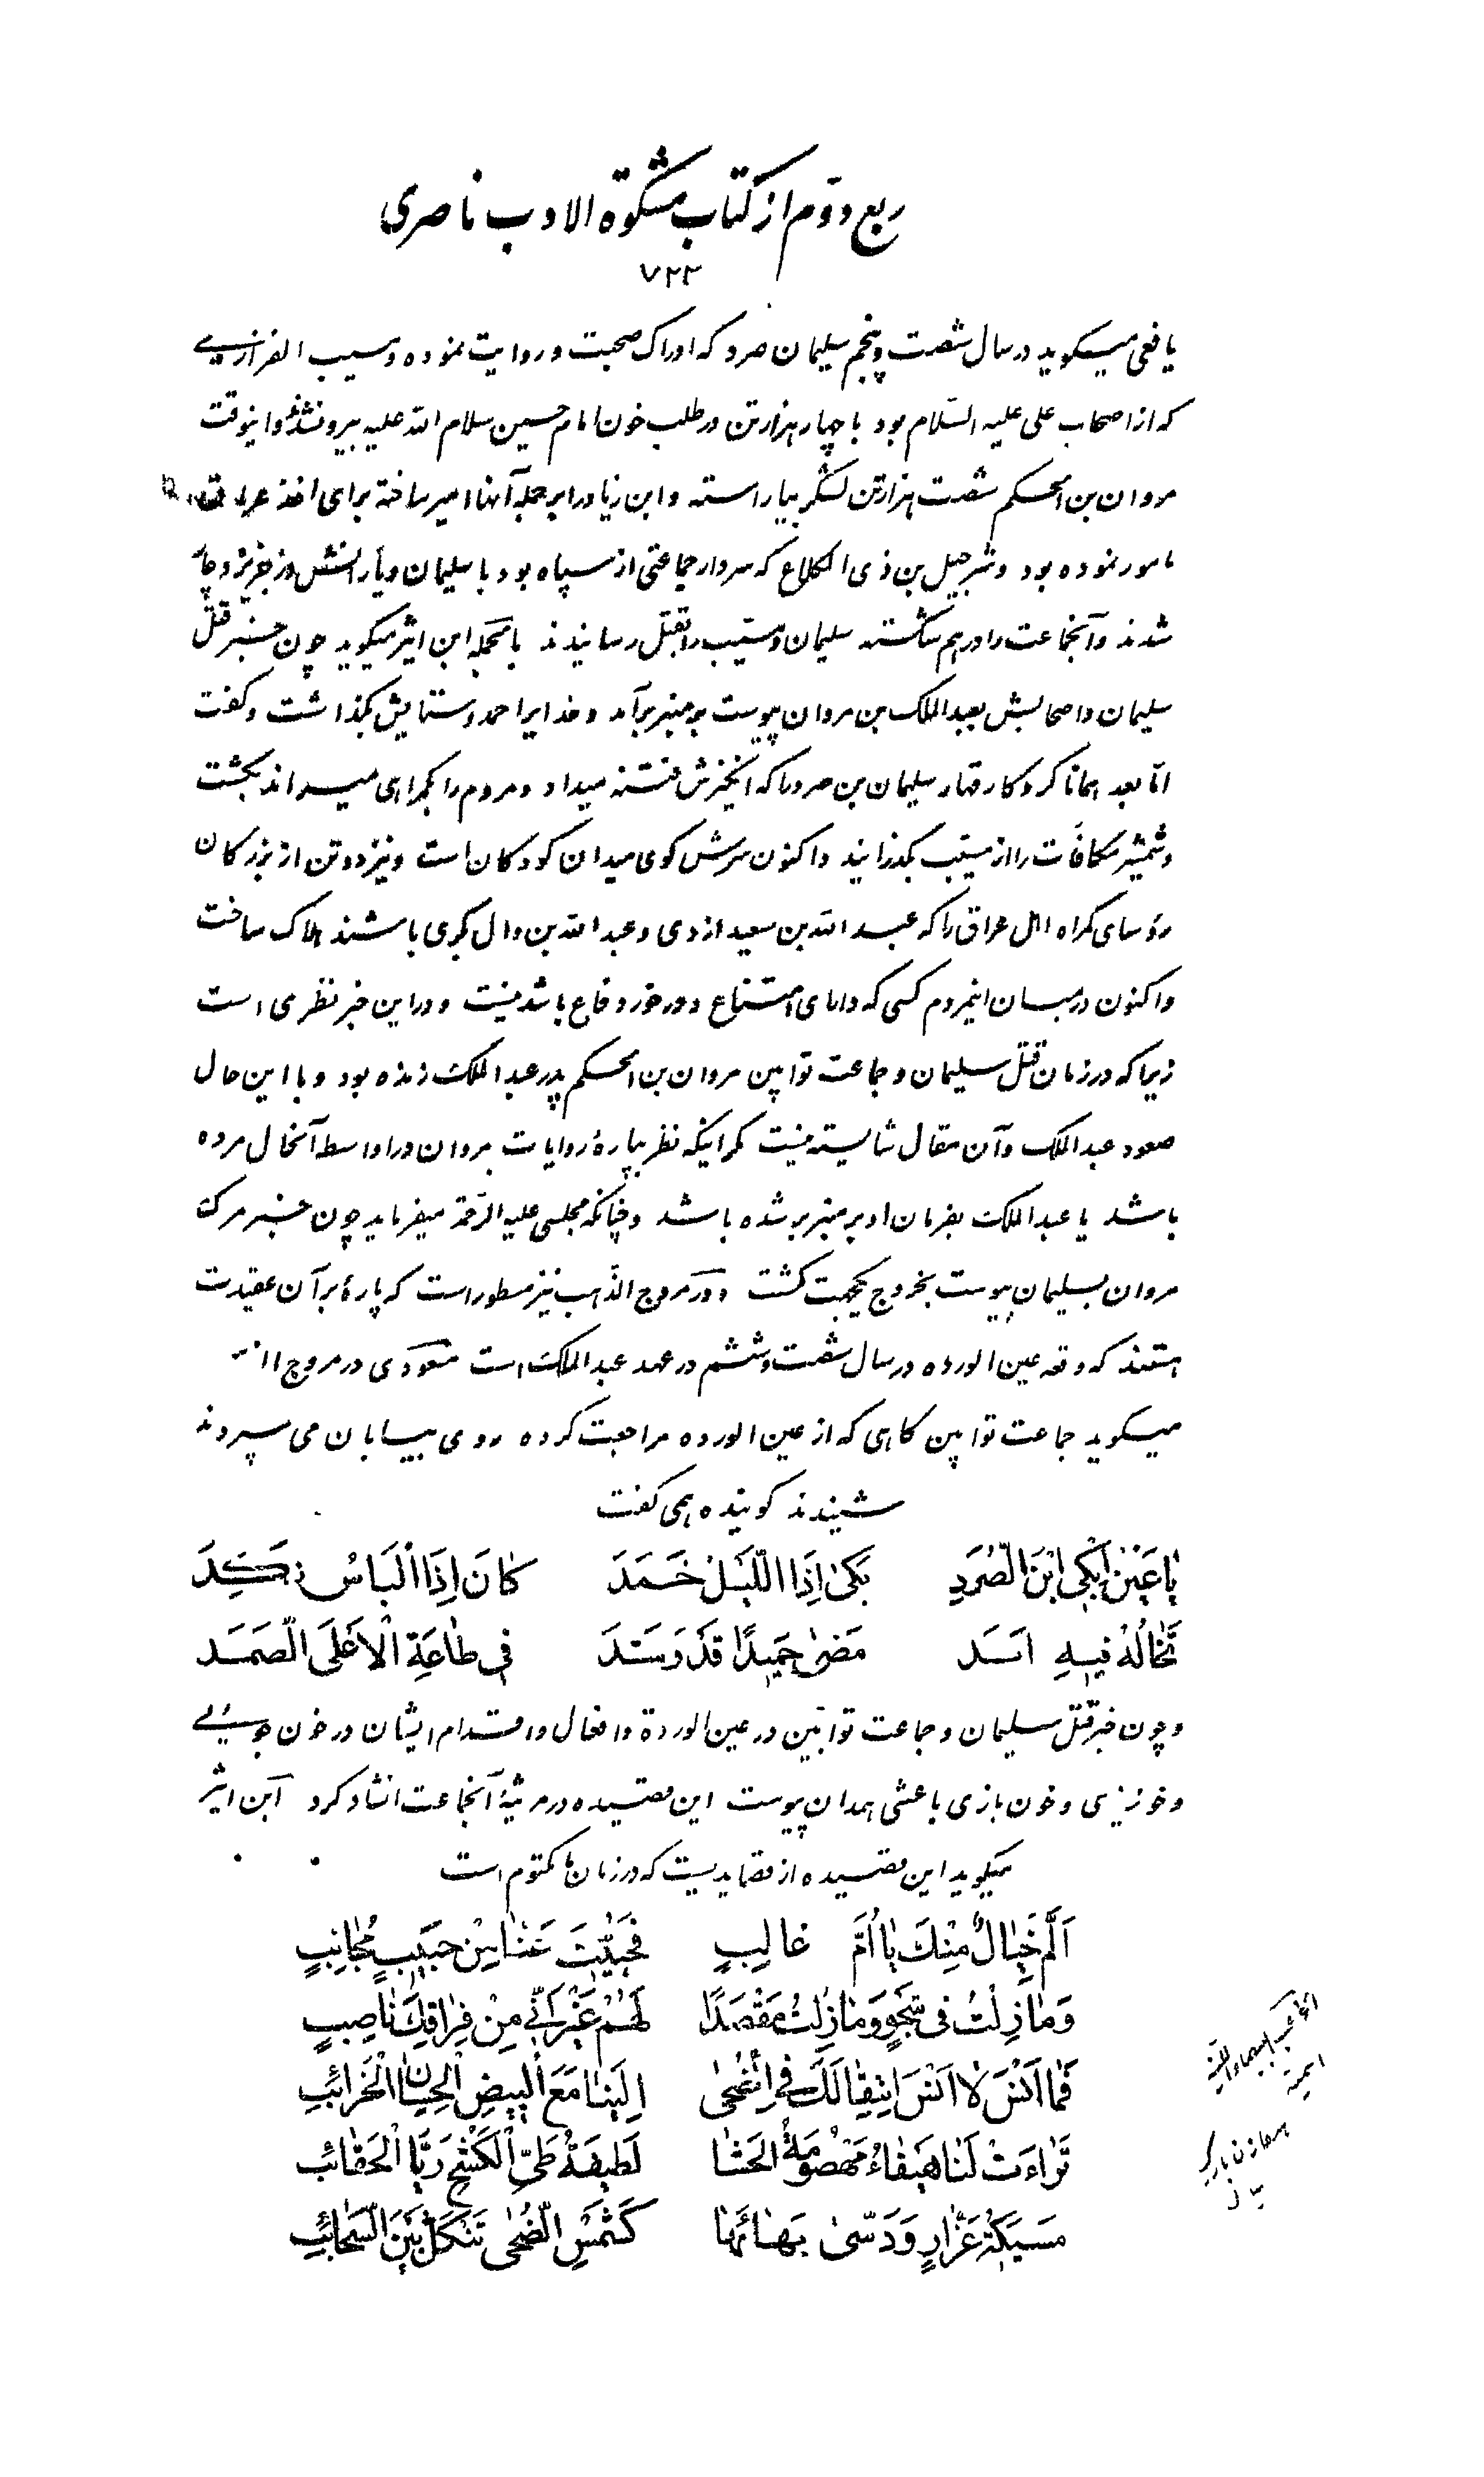 ربع دوّم از کتاب مشکوة الادب ناصری
۷۲۳
یافعی میگوید در سال شصت و پنجم سلیمان صرد که ادراک صحبت و روایت نموده و مسیب الفزاری
که از اصحاب علی علیه السّلام بود با چهار هزار تن در طلب خون امام حسین سلام الله علیه بیرون شدند و اینوقت
مروان بن الحکم شصت هزار تن لشکر بیاراسته و ابن زیاد را بر جمله آنها امیر ساخته برای اخذ عراق
مامور نموده بود و شرحبیل بن ذی الکلاع که سردار جماعتی از سپاه بود با سلیمان و یارانش در جزیره دچار
شدند و آنجماعت را درهم شکسته سلیمان و مسیّب را بقتل رسانیدند بالجمله ابن اثیر میگوید چون خبر قتل
سلیمان و اصحابش بعبدالملک بن مروان پیوست بر منبر برآمد و خدایرا حمد و ستایش بگذاشت و گفت
امّا بعد همانا کردکار قهار سلیمان بن صرد را که انگیزش فتنه میداد و مردم را بگمراهی میراند بکشت
و شمشیر مکافات را از مسیّب بگذرانید و اکنون سرش کوی میدان کودکان است و نیز دو تن از بزرگان
رؤسای گمراه اهل عراق را که عبدالله بن سعید ازدی و عبدالله بن وال بکری باشند هلاک ساخت
و اکنون در میان اینمردم کسی که دارای امتناع و در خور دفاع باشد نیست و در این خبر نظری است
زیرا که در زمان قتل سلیمان و جماعت توابین مروان بن الحکم پدر عبدالملک زنده بود و با این حال
صعود عبدالملک و آن مقال شایسته نیست مگر اینکه نظر بپارهٔ روایات مروان در اواسط آنحال مرده
باشد یا عبدالملک بفرمان او بر منبر بر شده باشد و چنانکه مجلسی علیه الرّحمة میفرماید چون خبر مرگ
مروان بسلیمان پیوست بخروج یکجهت گشت و در مروج الذّهب نیز مسطور است که پارهٔ بر آن عقیدت
هستند که وقعه عین الورده در سال شصت و ششم در عهد عبدالملک است مسعودی در مروج
میگوید جماعت توابین گاهی که از عین الورده مراجعت کرده روی بیابان می سپردند
شنیدند گوینده همی گفت
یٰا عَیْنُ اَبْکِی ابْنَ الصُّرَدِ بَکیٰ اِذَا اللَّیْلُ خَمَدَ کٰانَ اِذَا الْبَأسُ نکِدَ
تَخٰالُهُ فیهِ اَسَد مَضیٰ حَمیدًا قَدْ رَشَدَ فی طٰاعَةِ الْاَعْلَی الصَّمَد
و چون خبر قتل سلیمان و جماعت توابین در عین الوردة و افعال و اقدام ایشان در خون جویی
و خونریزی و خون بازی باعشی همدان پیوست این قصیده در مرثیهٔ آنجماعت انشاد کرد ابن اثیر
میگوید این قصیده از قصایدیست که در زمانها مکتوم است
اَلَمَّ خَیٰالٌ مِنْکَ یٰا اُمَّ غٰالِبٍ فَحُیّیتَ عَنّا مِنْ حَبیبٍ مُجٰانِبٍ
وَمٰا زِلْتُ فی شَجْوٍ وَمٰا زِلْتُ مُقْصَدًا لَهُمْ غَیْرَ اَنّی مِنْ فِرٰاقِکَ نٰاصِبٍ
فَمٰا اَنْسَ لٰا اَنْسَ انْتِقٰالَکَ فِی الضُّحیٰ اِلَیْنٰا مَعَ الْبیضِ الْحِسٰانِ الْخَرائِبِ
تَرٰاءَتْ لَنٰا هَیْفٰاءُ مَهْضُومَةُ الْحَشٰا لَطیفَةُ طَیِّ الْکَشْحِ رَیَّا الْحَقٰائِبِ
کَشَمْسِ الضُّحیٰ تَنْکَلُّ بَیْنَ السَّحٰائِبِ